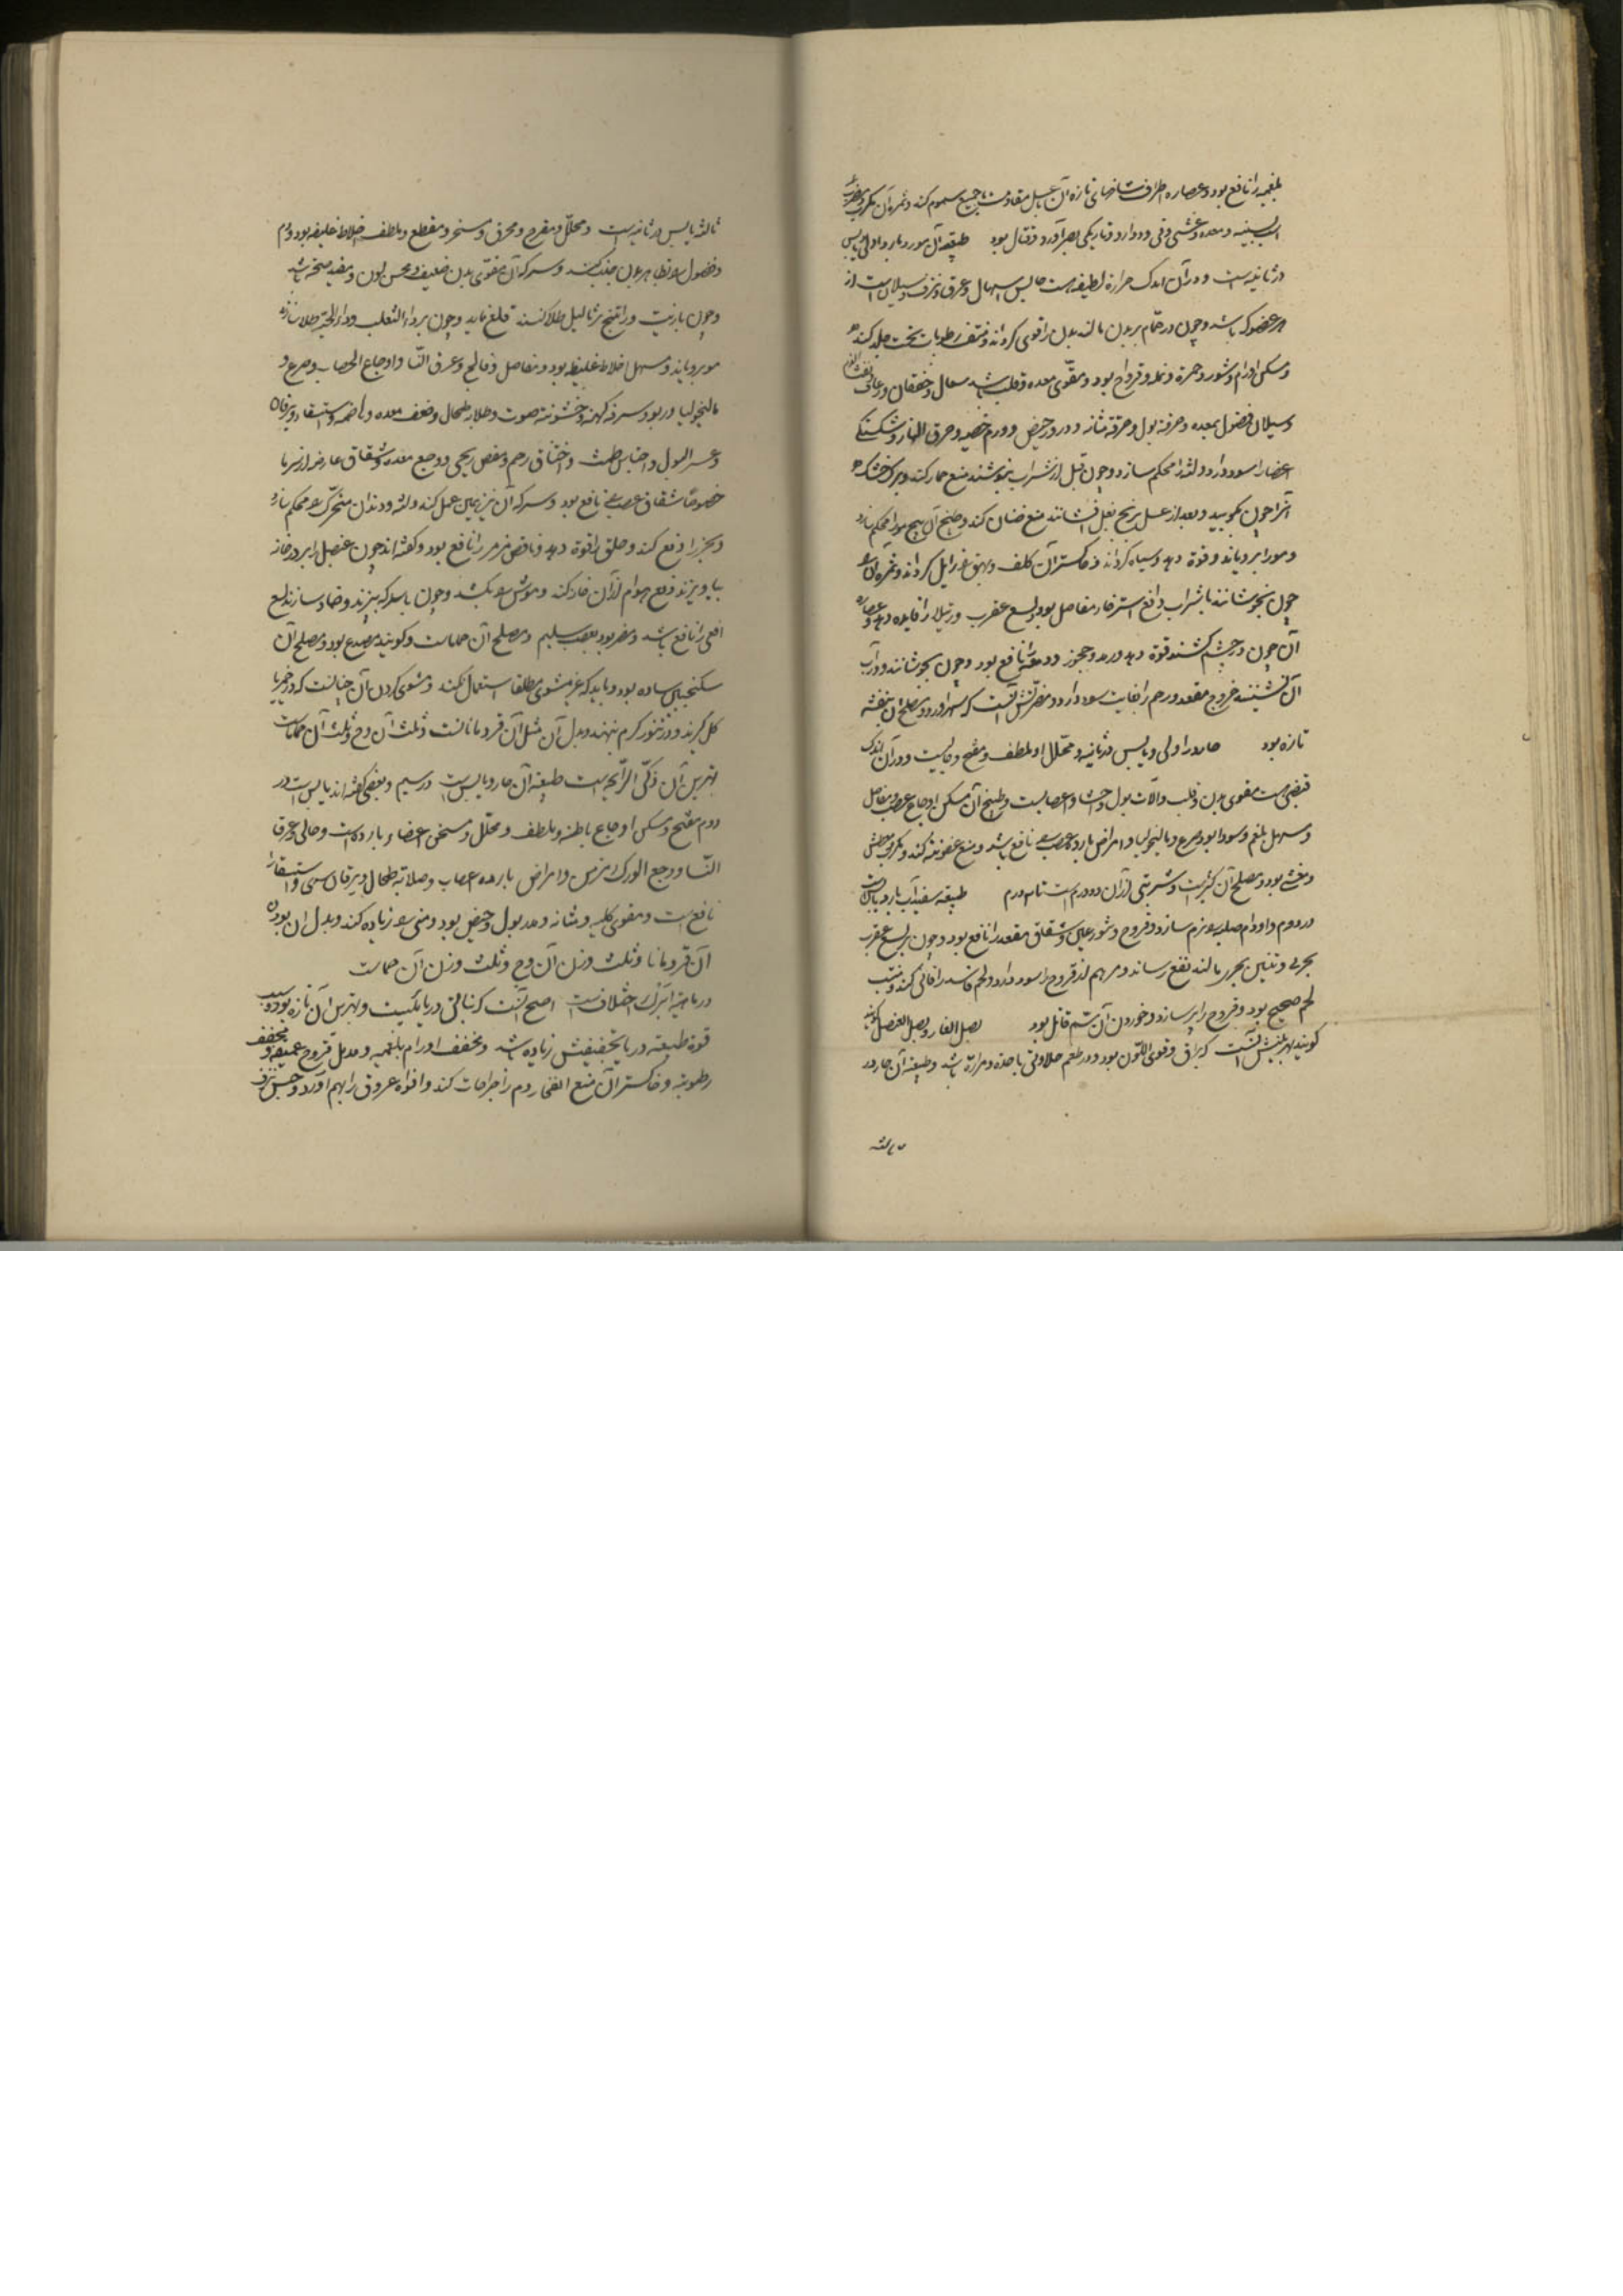 بلغمیه را نافع بود و عصاره اطراف شاخهای تازه آن با عسل مقاومت با جمیع سموم کند و ثمره آن مکرب
السینه و معده و غشی و قی و دوار و تاریکی بصر آورد و قتال بود طبیعة آن مورد بارد در اولی یابس
در ثانیه است و در آن اندک حرارة لطیفه هست حابس اسهال و عرق و نزف و سیلان است از
هر عضو که باشد و چون در حمام بر بدن مالند بدن را قوی گرداند و منشف رطوبات تحت جلد کند
و مسکن اورام و بثور و حمره و نمله و قروح بود و مقوی معده و قلب باشد سعال و خفقان و رعاف
و سیلان فضول بمعده و حرقة بول و حرقة مثانه و درور حیض و ورم خصیه و حرق النار و شکستگی
اعضا را سود دارد و لثه را محکم سازد و چون قبل از شراب بنوشند منع خمار کند و برگ خشک
آنرا چون بکوبند و بعد از عسل بر بیخ بغل افشانند منع صنان کند و طبخ آن بیخ مو را محکم سازد
و مو را برویاند و قوة دهد و سیاه گرداند و خاکستر آن کلف و بهق را زایل گرداند و ثمره آن
چون بجوشانند با شراب دافع استرخاء مفاصل بود و لسع عقرب و رتیلا را فایده دهد و عصاره
آن چون در چشم کشند قوة دهد و رمد و جحوظ و دمعه را نافع بود و چون بجوشانند و در آب
آن نشینند خروج مقعد و رحم را بغایت سود دارد و مضرتش آنست که سهر آورد و مصلح آن بنفشه
تازه بود حار در اولی و یابس در ثانیه و محلل و ملطف و مفتح و جالیست و در آن اندک
قبضی هست مقوی بدن و قلب و آلات بول و احشا و اعصابست و طبیخ آن مسکن اوجاع عصب و مفاصل
و مسهل بلغم و سودا بود و صرع و مالنخولیا و امراض بارده عصب را نافع باشد و منع عفونة کند و مکرب و معطش
و مغثی بود و مصلح آن کتیراست و شربتی از آن دو درم است تا سه درم طبیعة سفیدآب بارد یابس است
در دوم و اورام صلبه را نرم سازد و قروح و بثور عین و شقاق مقعد را نافع بود و چون بر لسع عقرب
بحری و تنین بحری مالند نفع رساند و مرهم آن قروح را سود دارد و لحم فاسد را فانی کند و منبت
لحم صحیح بود و قروح را پر سازد و خوردن آن سم قاتل بود بصل الفار و بصل العنصل گویند
گویند بهترینش آنست که براق و قوی اللون بود و در طعم حلاوتی با حده و مرارة باشد و طبیعة آن حار در
ثالثه
ثالثه یابس در ثانیه است و محلل و مقرح و محرق و مسخن و مقطع و ملطف اخلاط غلیظه بود و دم
و فضول را بظاهر بدن جذب کند و سرکه آن مقوی بدن ضعیف و محسن لون و مفید صحة باشد
و چون با زیت و راتینج بر ثالیل طلا کنند قلع نماید و چون بر داء الثعلب و داء الحیه طلا سازند
مو برویاند و مسهل اخلاط غلیظه بود و مفاصل و فالج و عرق النسا و اوجاع اعصاب و صرع و
مالنخولیا و ربو و سرفه کهنه و خشونة صوت و صلابة طحال و ضعف معده و هاضمه و استسقاء و یرقان
و عسر البول و احتباس طمث و اختناق رحم و مغص ریحی و وجع معده و شقاق عارض از سرما
خصوصا شقاق عقب را نافع بود و سرکه آن نیز همین عمل کند و لثه و دندان متحرک را محکم سازد
و بخر را دفع کند و حلق را قوة دهد و نافض مزمن را نافع بود و گفته‌اند چون عنصل را بر در خانه
بیاویزند دفع هوام از آن خانه کند و موش را بکشد و چون با سرکه بپزند و ضماد سازند لسع
افعی را نافع باشد و مضر بود بعصب سلیم و مصلح آن حماماست و گویند مصدع بود و مصلح آن
سکنجبین ساده بود و باید که غیر مشوی مطلقا استعمال نکنند و مشوی کردن آن چنانست که در خمیر یا
گل گیرند و در تنور گرم نهند و بدل آن مثل آن قردماناست و ثلث آن وج و ثلث آن حماماست
بهترین آن ذکی الرایحه است طبیعة آن حار و یابس است در سیم و بعضی گفته‌اند یابس است در
دوم مفتح و مسکن اوجاع باطنه و ملطف و محلل و مسخن اعضاء بارده است و جالی و عرق
النسا و وجع الورک مزمن و امراض بارده اعصاب و صلابة طحال و یرقان سدی و استسقا را
نافع است و مقوی کلیه و مثانه و مدر بول و حیض بود و منی را زیاده کند و بدل آن بوزن
آن قردمانا و ثلث وزن آن وج و ثلث وزن آن حماماست
در ماهیة آن اختلافست اصح آنست که نباتی دریاییست و بهترین آن تازه بود و سبب
قوة طبیعة دریا تجفیفش زیاده باشد و مخفف اورام بلغمیه و مدمل قروح عمیقه و مجفف
رطوبة و خاکستر آن منع انفجار دم از جراحات کند و افواه عروق را بهم آورد و حبس نزف